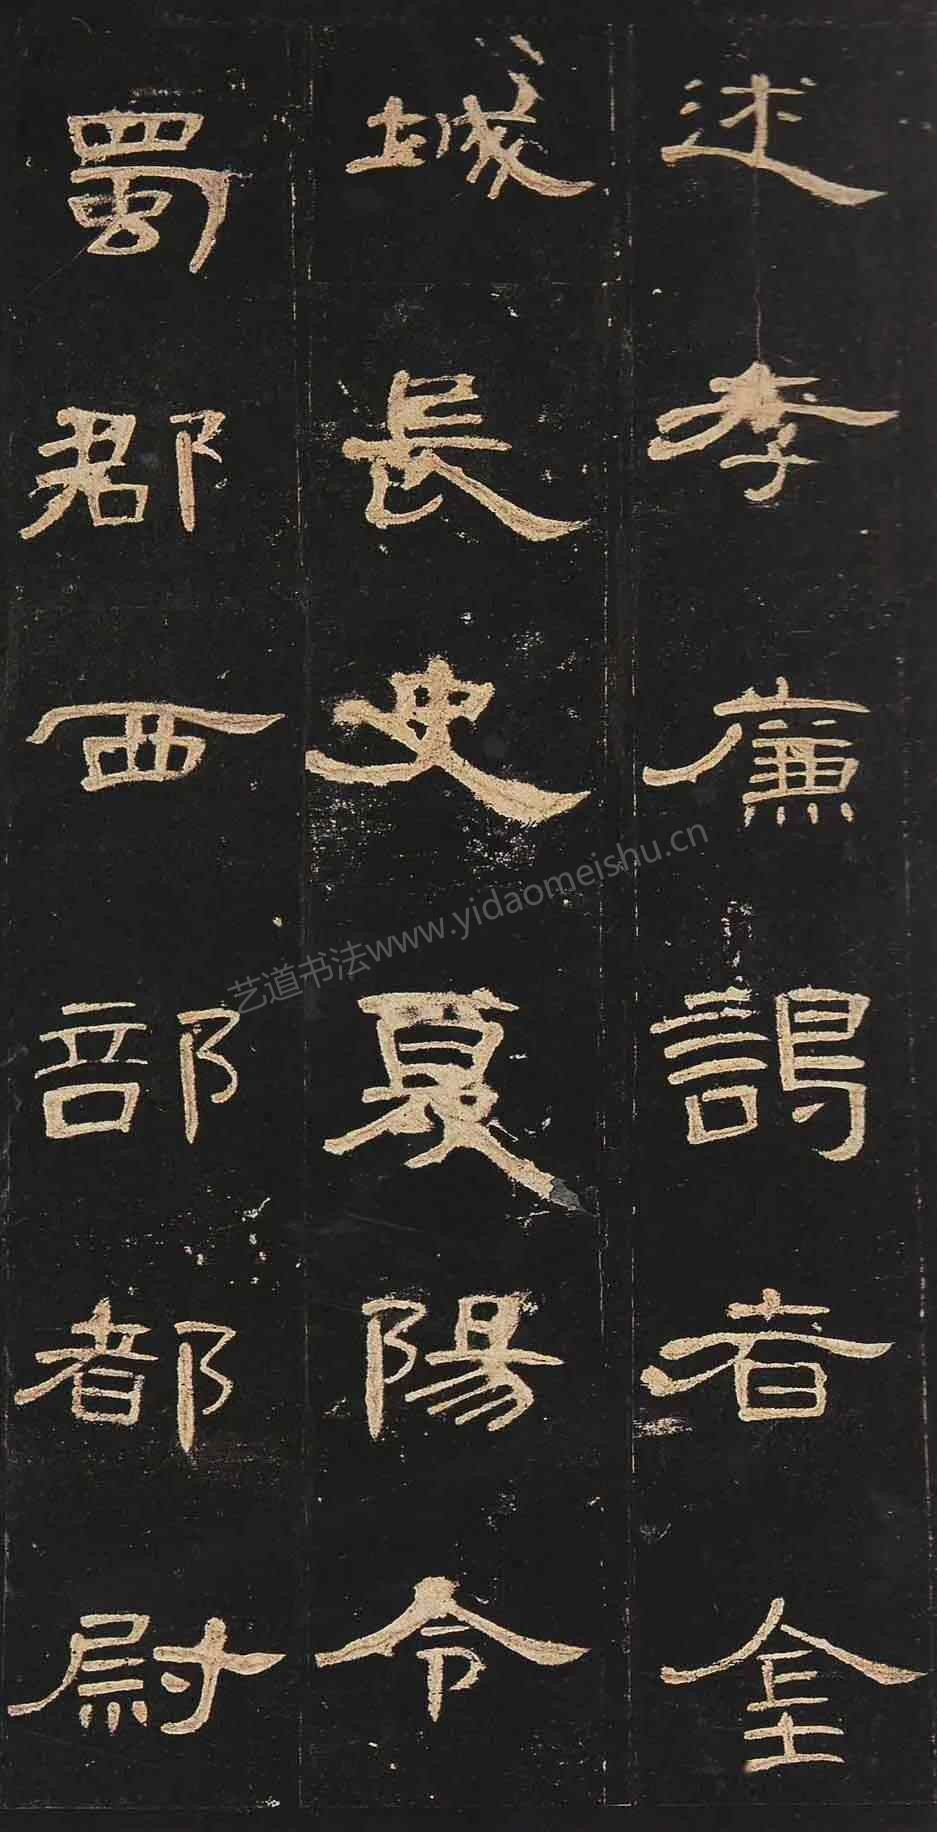 述孝廉謁者金
城長史夏陽令
蜀郡西部都尉
艺道书法www.yidaomeishu.cn